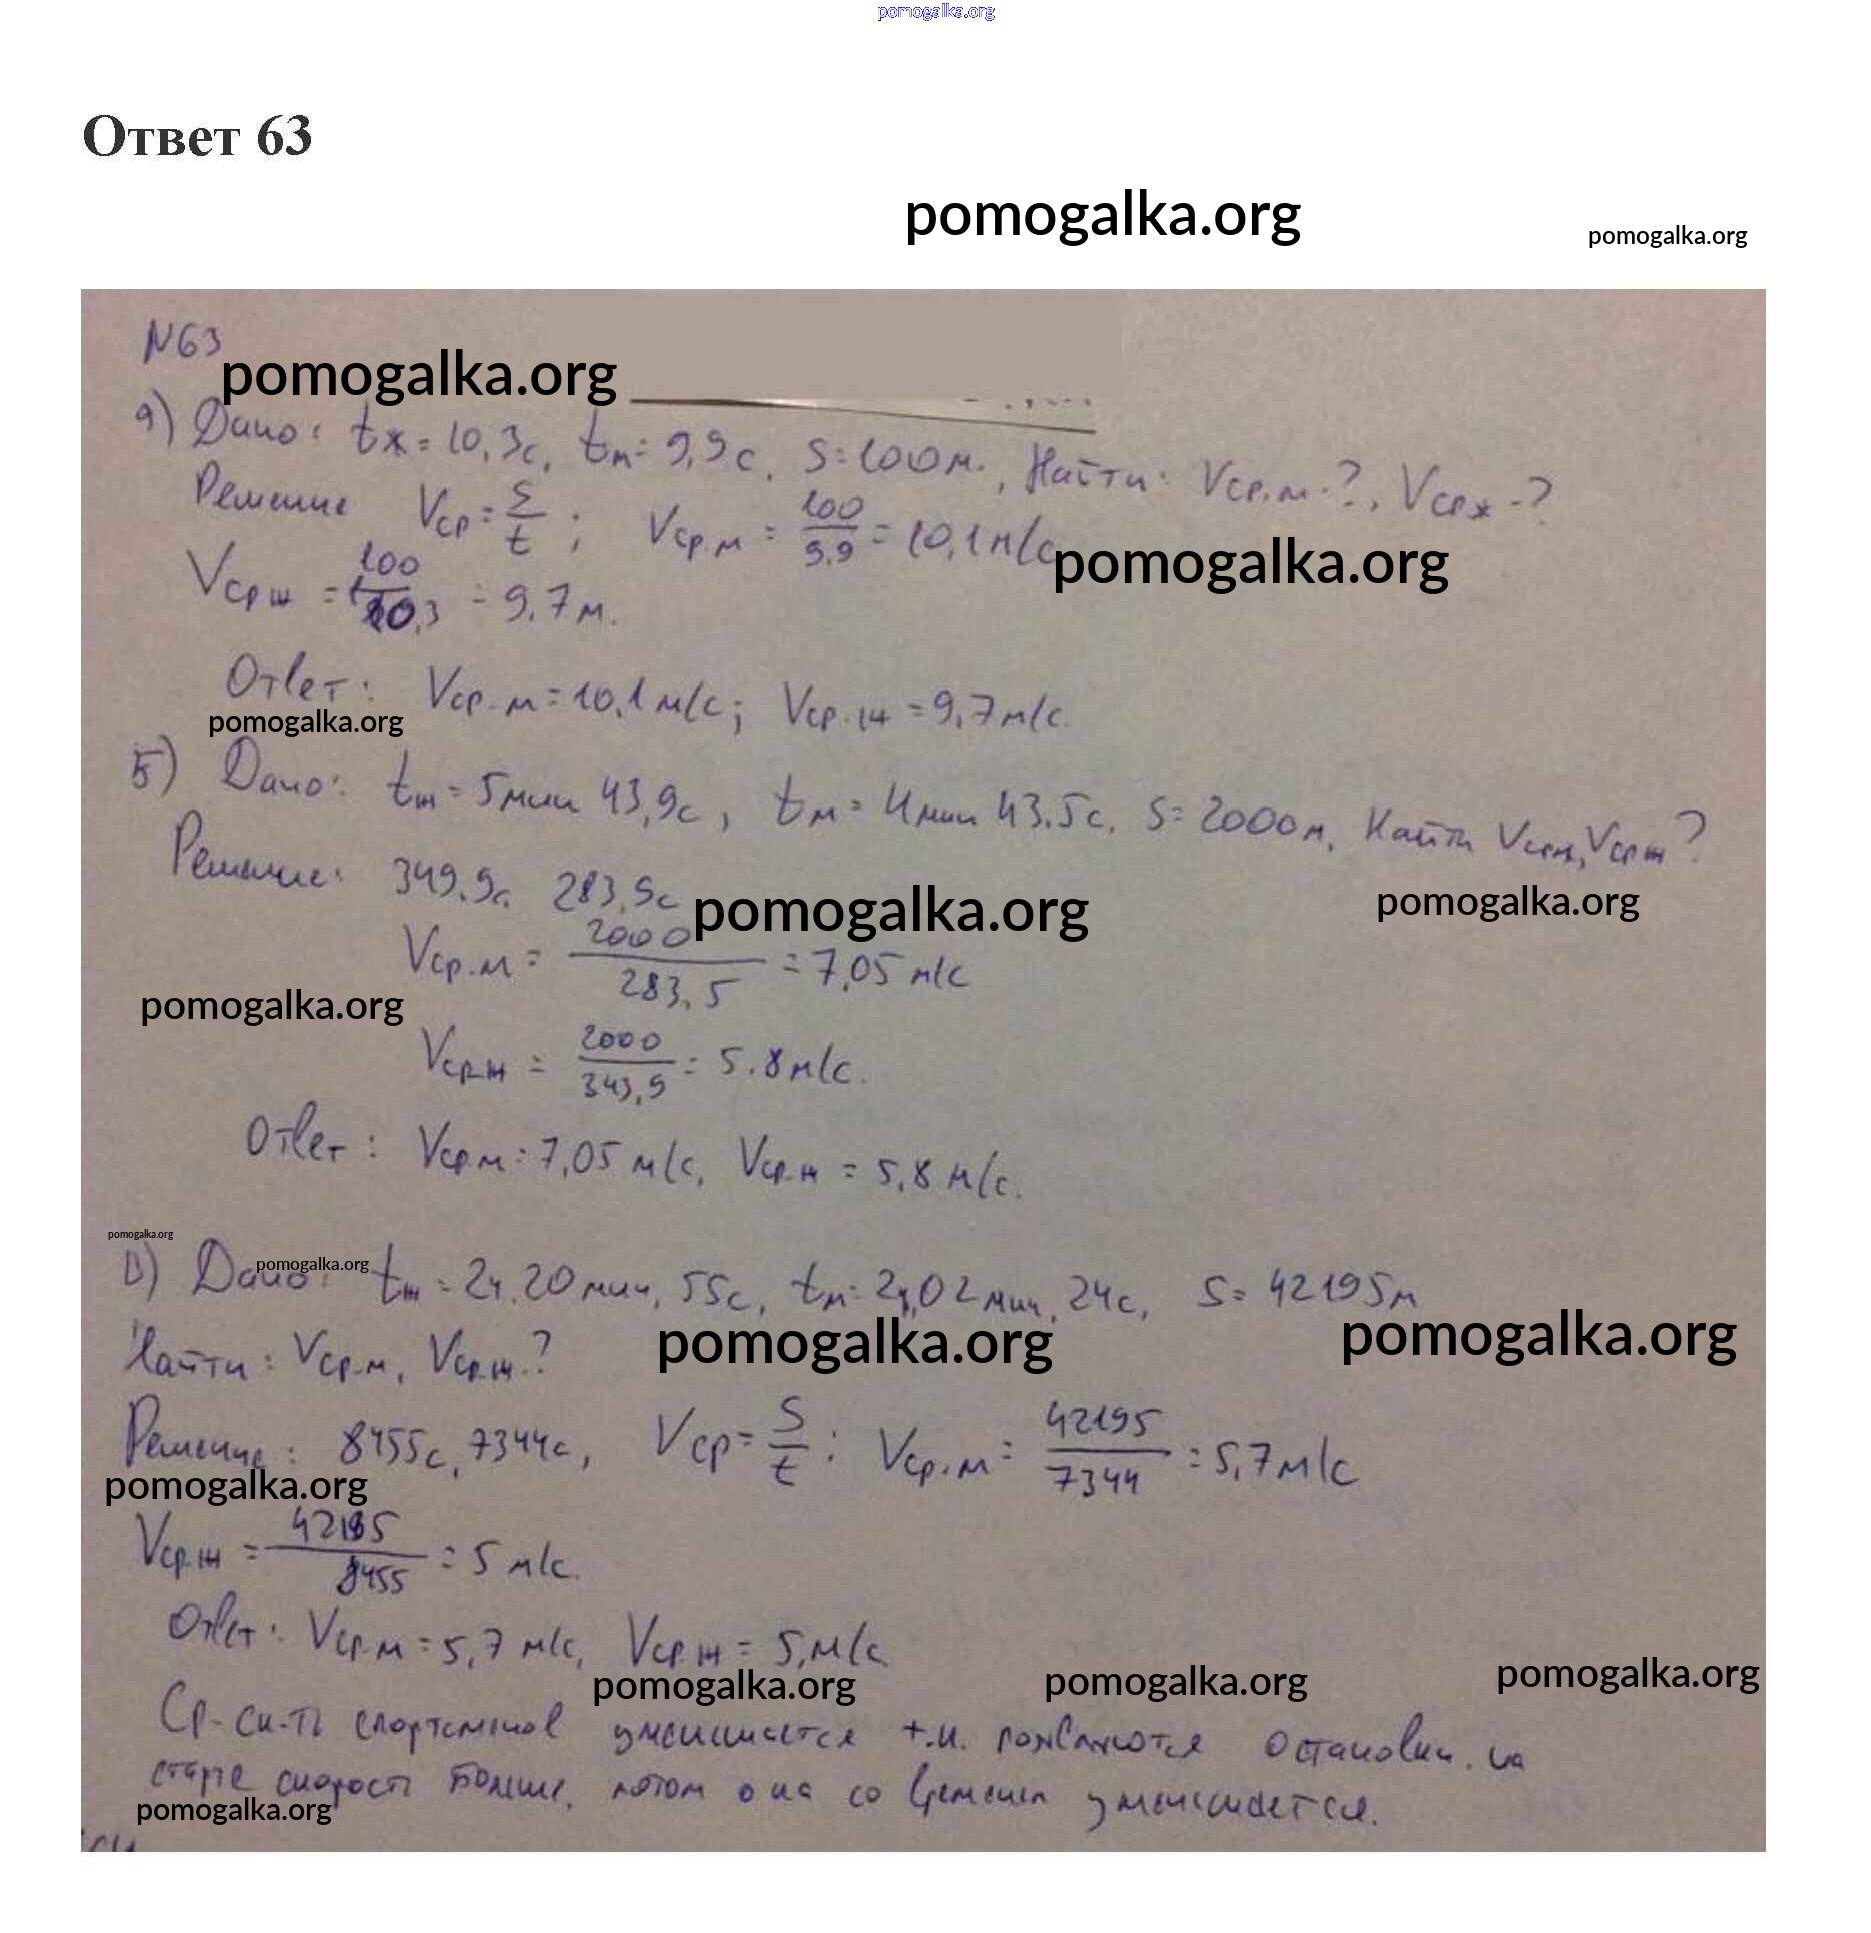 pomogalka.org
Ответ 63
pomogalka.org
pomogalka.org
N63
pomogalka.org
а) Дано: tж = 10,3с, tм = 9,9с, S = 100м., Найти: Vср.м-?, Vсрж-?
Решение Vср = S/t ; Vср.м = 100/9,9 = 10,1м/с
pomogalka.org
Vсрж = 100/10,3 = 9,7м.
Ответ: Vср.м = 10,1м/с; Vср.ж = 9,7м/с.
pomogalka.org
Б) Дано: tж = 5мин 43,9с, tм = 4мин 43,5с, S = 2000м, Найти Vсрм, Vсрж?
Решение: 349,9с 283,5с
pomogalka.org
pomogalka.org
Vср.м = 2000/283,5 = 7,05 м/с
pomogalka.org
Vср.ж = 2000/343,9 = 5,8м/с.
Ответ: Vср.м = 7,05 м/с, Vср.ж = 5,8 м/с.
pomogalka.org
pomogalka.org
В) Дано: tж = 2ч.20мин, 55с, tм = 2ч,02мин, 24с, S = 42195м
pomogalka.org
pomogalka.org
Найти: Vср.м, Vср.ж.?
Решение: 8455с, 7344с, Vср = S/t : Vср.м = 42195/7344 = 5,7м/с
pomogalka.org
Vср.ж = 42195/8455 = 5 м/с.
Ответ: Vср.м = 5,7 м/с, Vср.ж = 5,м/с
pomogalka.org
pomogalka.org
pomogalka.org
Ср-ск-ть спортсменов уменьшается т.к. появляются остановки. на
старте скорость больше, потом она со временем уменьшается.
pomogalka.org